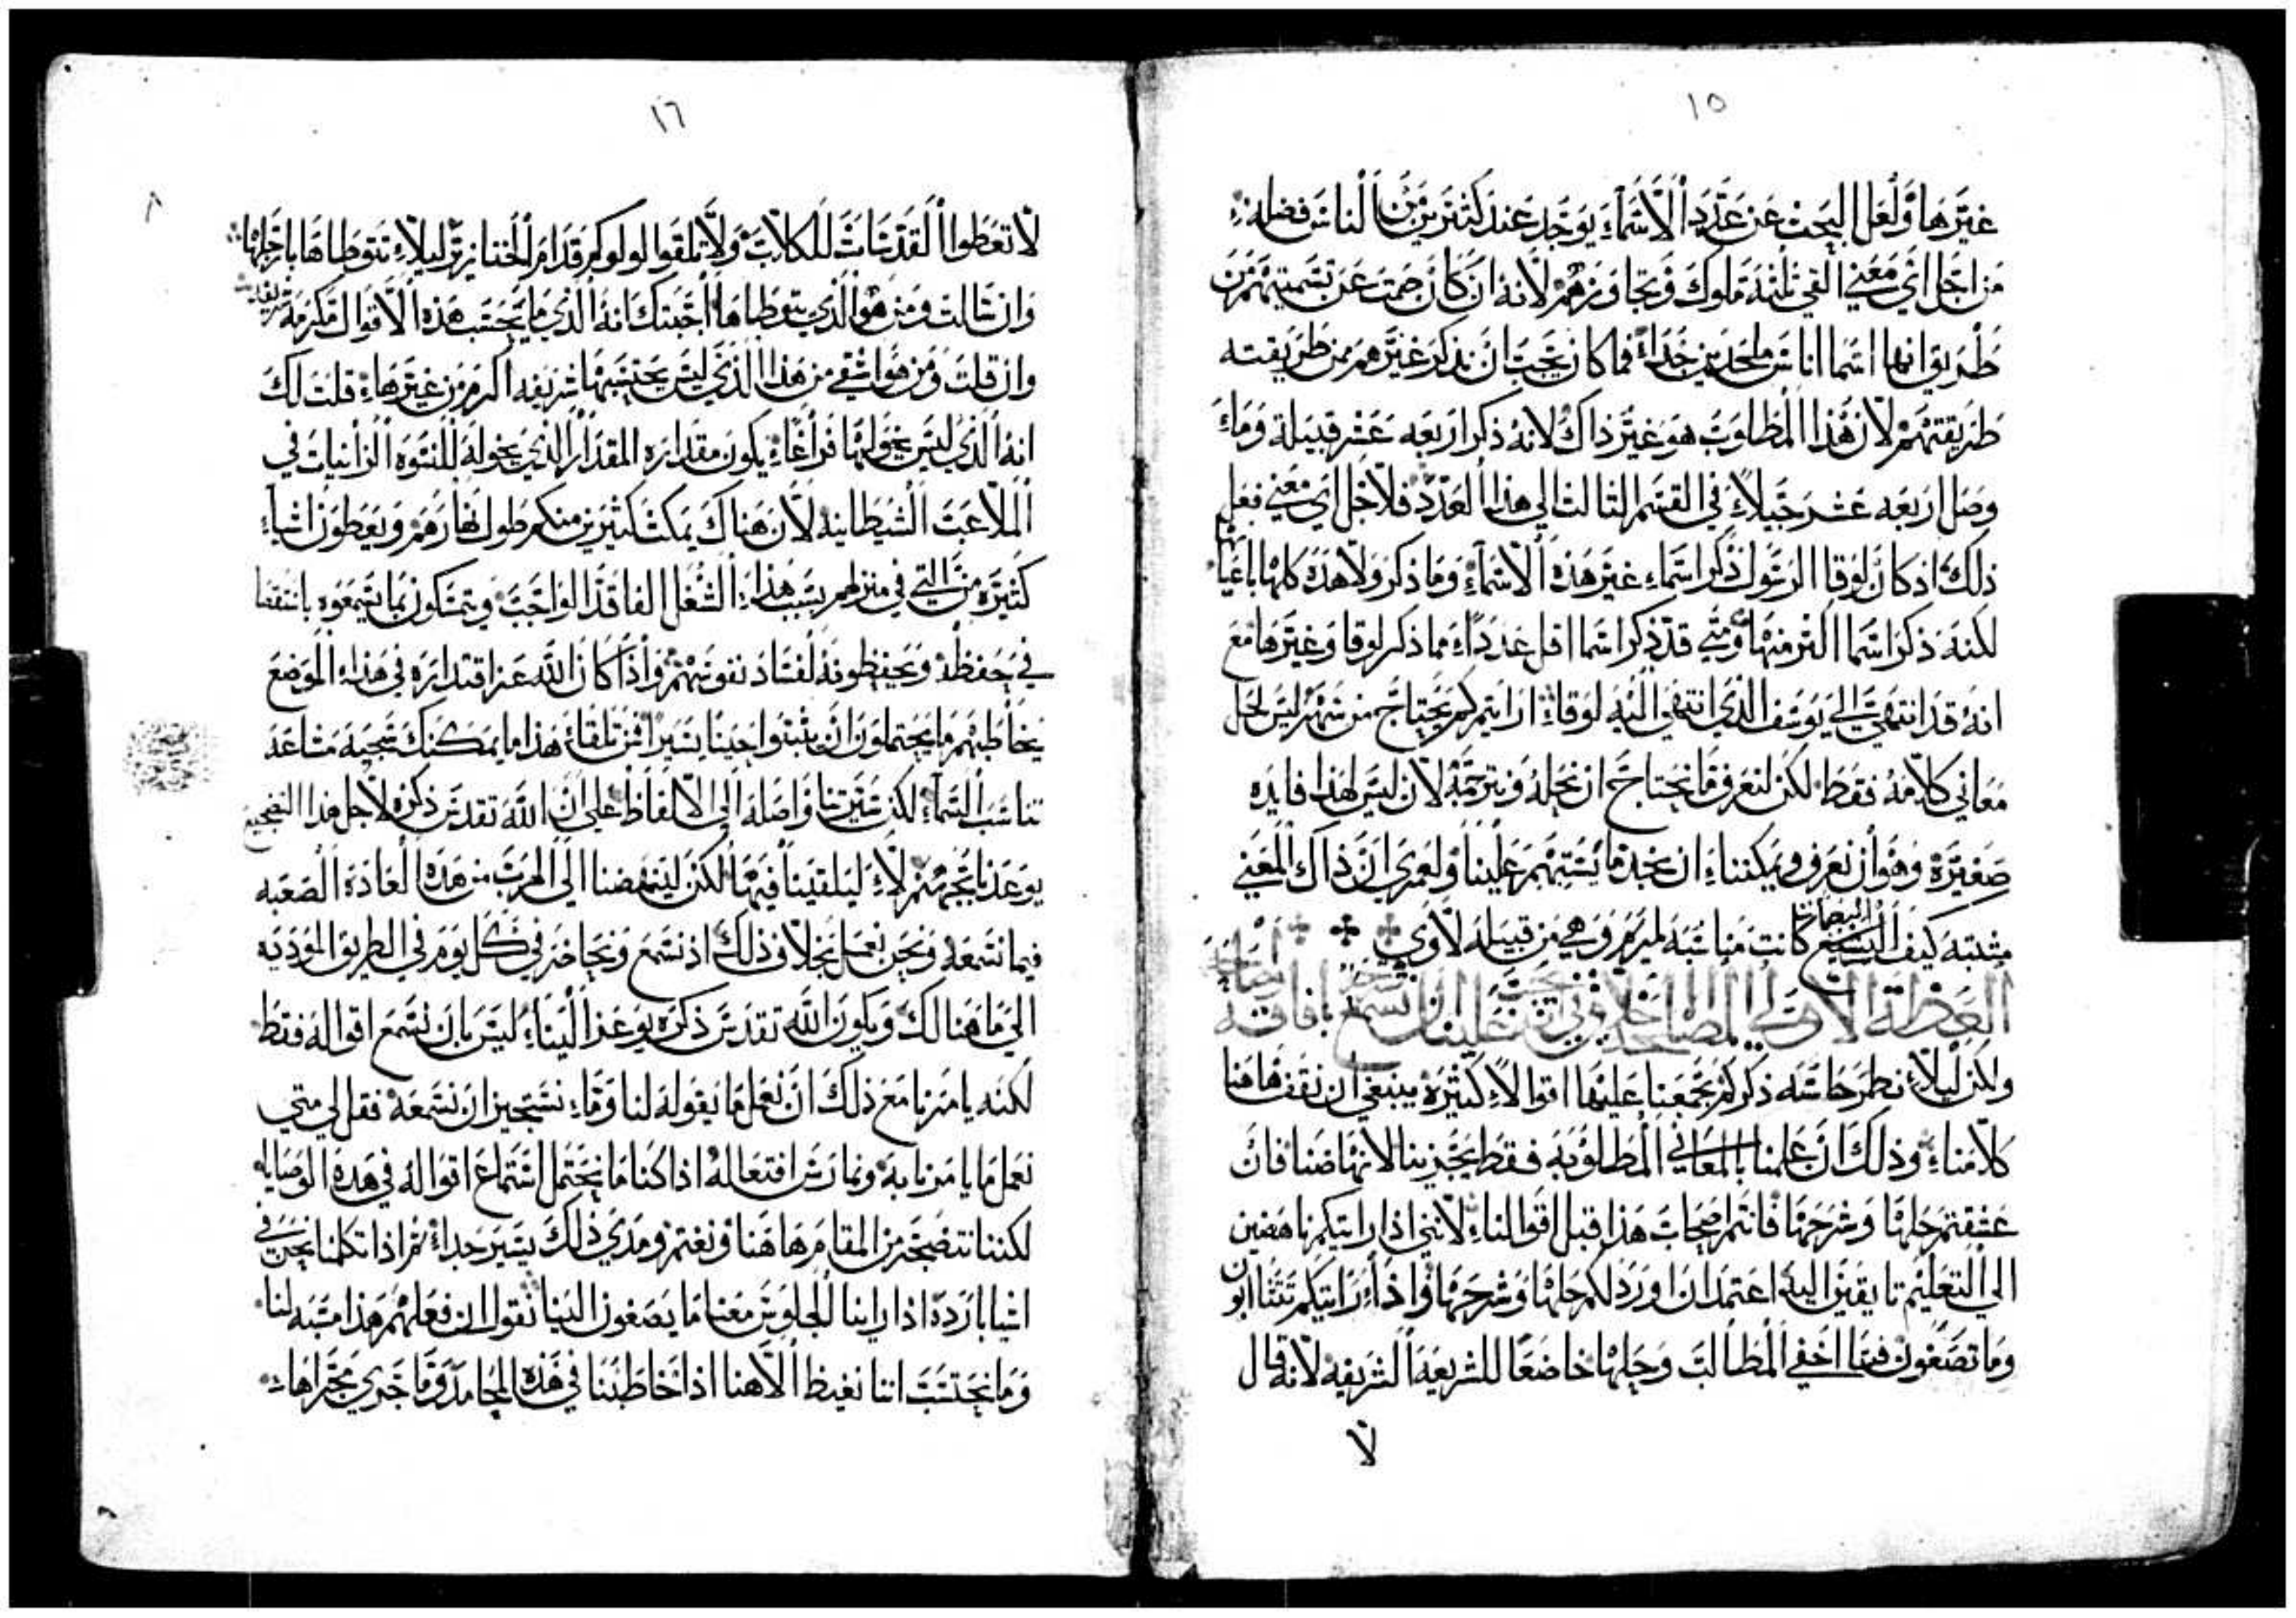 ١٥
غيرها ولعل البحث عن عدد الاسماء يوجد عند كثيرين من الناس فضله
من اجل اي معني القي ثلثة ملوك وتجاوزهم لانه ان كان صمت عن تسميتهم من
طريق انها اسما اناس ملحدين جداً فما كان يجب ان يذكر غيرهم من طريقته
طريقتهم لان هذا المطلوب هو غير ذاك لانه ذكر اربعه عشر قبيلة وما
وصل اربعه عشر جيلاً في القسم الثالث الي هذا العدد فلاجل اي معني فعل
ذلك اذ كان لوقا الرسول ذكر اسماء غير هذه الاسماء وما ذكر ولا هذه كلها باعيانها
لكنه ذكر اسما اكثر منها ومتي قد ذكر اسما اقل عدداً مما ذكر لوقا وغيرها مع
انه قد انتهي الي يوسف الذي انتهي اليه لوقا ارايتم كم يحتاج من سهر ليس لحل
معاني كلامه فقط لكن لنعرف ما نحتاج ان نحله ونترجمه لان ليس لهذا فايده
صغيره وهو ان نعرف ويمكننا ان نجد ما يستبهم علينا ولعمري ان ذاك المعني
مشتبه كيف اليصابات كانت مناسبه لمريم وهي من قبيلة لاوي
العظة الاولي
ولكن ليلا نطمر حاسه ذكركم بجمعنا عليها اقوالاً كثيره ينبغي ان نقف هاهنا
كلامنا وذلك ان علمنا بالمعاني المطلوبه فقط يجزينا لانهاضنا فان
عشقتم حلها وشرحها فانتم اصحاب هذا قبل اقوالنا لانني اذا رايتكم ناهضين
الي التعليم تايقين اليه اعتمد ان اورد لكم حلها وشرحها واذا رايتكم تتثاابون
وما تصغون فيما اخفي المطالب وحلها خاضعاً للشريعه الشريفه لانه قال
لا
١٦
٨
لا تعطوا القدسات للكلاب ولا تلقوا لولوكم قدام الخنازير ليلا تتوطاها بارجلها
وان سالت ومن هو الذي يتوطاها اجبتك انه الذي ما يحتسب هذه الاقوال مكرمه شريفه
وان قلت ومن هو اشقي من هذا الذي ليس يحتسبها شريفه اكرم من غيرها قلت لك
انه الذي ليس يخولها فراغاً يكون مقداره المقدار الذي يخوله للنسوه الزانيات في
الملاعب الشيطانيه لان هناك يمكث كثيرين منكم طول نهارهم ويعطون اشياء
كثيره من التي في منزلهم بسبب هذا الشغل الفاقد الواجب ويتمسكون بما يسمعوه باستقصا
في حفظه ويحفظونه لفساد نفوسهم واذا كان الله عز اقتداره في هذا الموضع
يخاطبهم ما يحتملون ان يثبتوا حيناً يسيراً فمن تلقاء هذا ما يمكنك شجيه مشاعد
تناسب السماء لكن سيرتنا واصله الي الالفاظ علي ان الله تقدس ذكره لاجل هذا التضجيع
يوعدنا بجهنم لا ليلقينا فيها لكن لينهضنا الي الهرب من هذه العاده الصعبه
فيما نسمعه ونحن نعمل بخلاف ذلك اذ نسمع ونحاضر في كل يوم في الطريق الموديه
الي ما هنالك ويكون الله تقدس ذكره يوعز الينا ليس بان نسمع اقواله فقط
لكنه يامرنا مع ذلك ان نعمل ما يقوله لنا وما نستجيز ان نسمعه فقل لي متي
نعمل ما يامرنا به ونمارس افتعاله اذا كنا ما نحتمل استماع اقواله في هذه الوصايا
لكننا نتضجر من المقام هاهنا ونغتم ومدي ذلك يسير جداً ثم اذا تكلمنا نحن في
اشيا بارده اذا راينا الجلوس معنا ما يصغون الينا نقول ان فعلهم هذا مسبه لنا
وما نحتسب اننا نغيظ الاهنا اذا خاطبنا في هذه المحامد وما جري مجراها